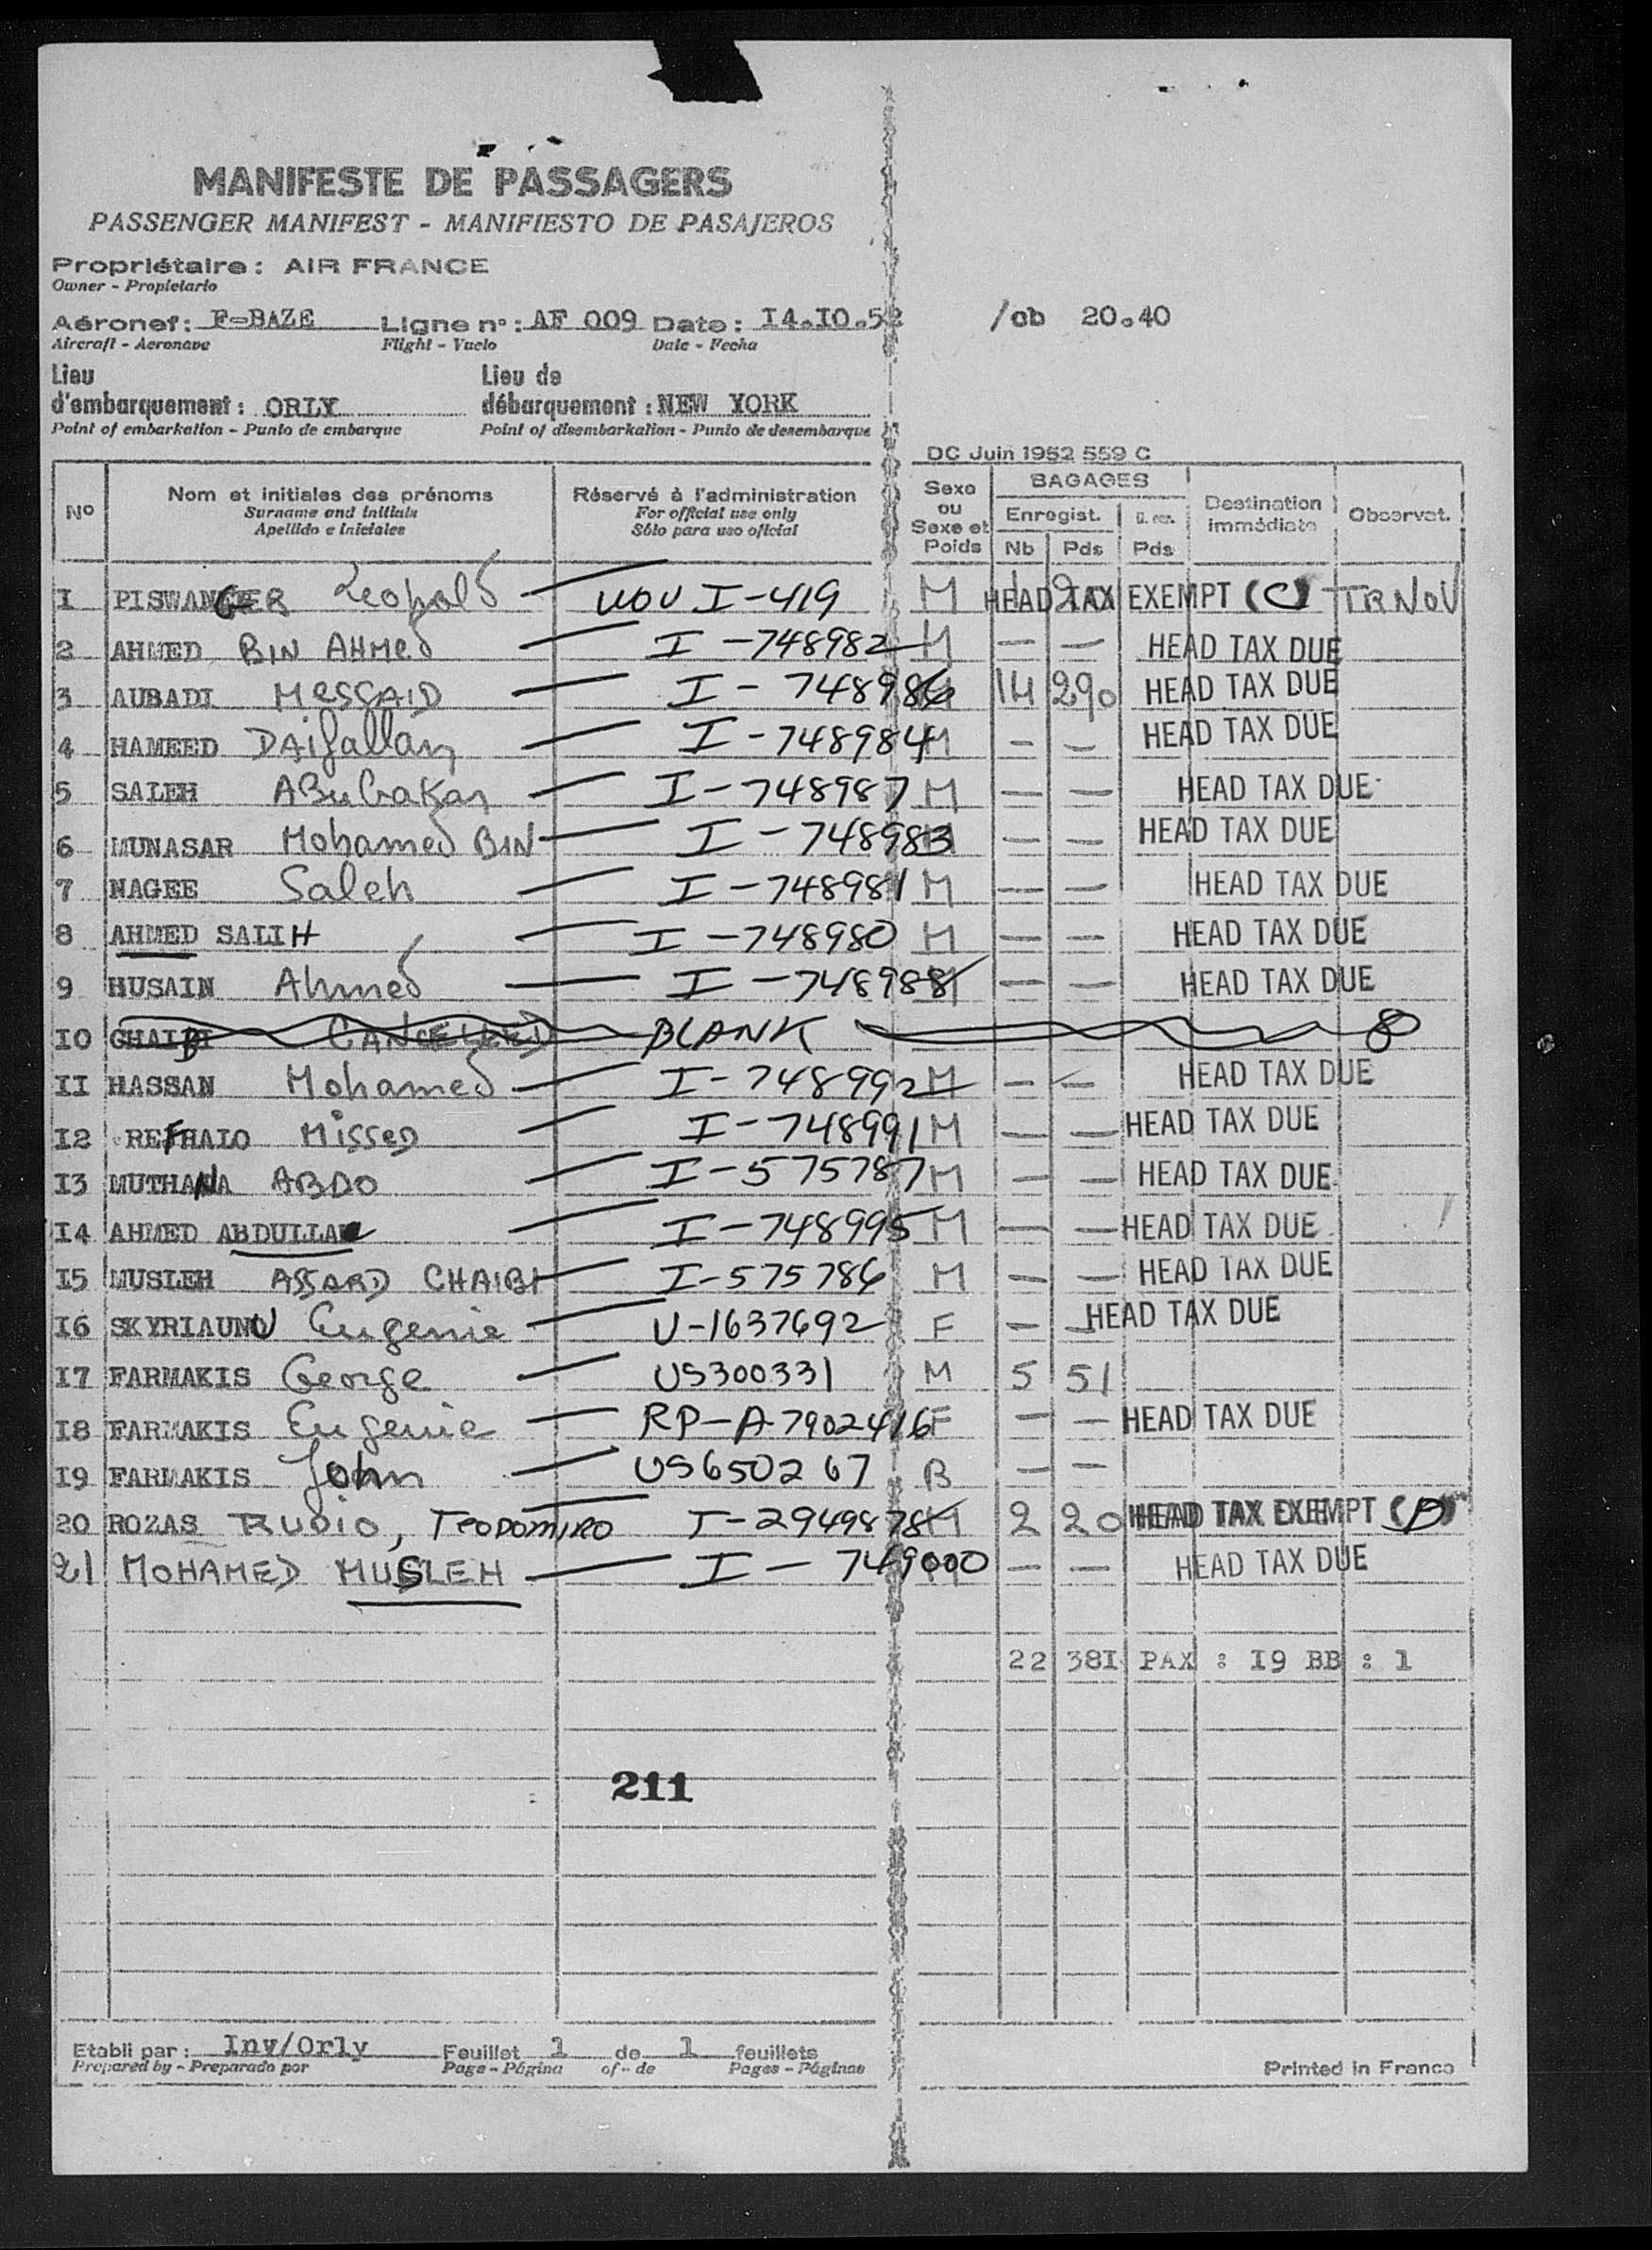 MANIFESTE DE PASSAGERS
PASSENGER MANIFEST - MANIFIESTO DE PASAJEROS
Propriétaire : AIR FRANCE
Owner - Propietario
Aéronef : F-BAZE Ligne n° : AF 009 Date : I4.I0.52 /ob 20.40
Aircraft - Aeronave Flight - Vuelo Date - Fecha
Lieu d'embarquement : ORLY Lieu de débarquement : NEW YORK
Point of embarkation - Punto de embarque Point of disembarkation - Punto de desembarque
DC Juin 1952 559 C
Nº Nom et initiales des prénoms Réservé à l'administration Sexe ou Sexe et Poids BAGAGES Destination immédiate Observat.
Surname and initials For official use only Enregist.
Apellido e iniciales Sólo para uso oficial Nb Pds Pds
I PISWANGER Leopold — UOU I-419 M HEAD TAX EXEMPT (C) TRNOV
2 AHMED BIN AHMED — I-748982 M — — HEAD TAX DUE
3 AUBADI MESSAID — I-748986 M 14 290 HEAD TAX DUE
4 HAMEED DAifallah — I-748984 M — — HEAD TAX DUE
5 SALEH ABubakar — I-748987 M — — HEAD TAX DUE
6 MUNASAR Mohamed BIN — I-748983 M — — HEAD TAX DUE
7 NAGEE Saleh — I-748981 M — — HEAD TAX DUE
8 AHMED SALIH — I-748980 M — — HEAD TAX DUE
9 HUSAIN Ahmed — I-748988 M — — HEAD TAX DUE
I0 CHAIBI CANCELLED BLANK
II HASSAN Mohamed — I-748992 M — — HEAD TAX DUE
I2 REFHAIO MISSED — I-748991 M — — HEAD TAX DUE
I3 MUTHANA ABDO — I-575787 M — — HEAD TAX DUE
I4 AHMED ABDULLA — I-748995 M — — HEAD TAX DUE
I5 MUSLEH ASSARD CHAIBI — I-575786 M — — HEAD TAX DUE
I6 SKYRIAUNU Eugenie — U-1637692 F — — HEAD TAX DUE
I7 FARMAKIS George — US300331 M 5 51
I8 FARMAKIS Eugenie — RP-A-7902416 F — — HEAD TAX DUE
I9 FARMAKIS John — US650267 B — —
20 ROZAS RUBIO, TEODOMIRO I-2949878 M 2 20 HEAD TAX EXEMPT (P)
21 MOHAMED MUSLEH — I-749000 M — — HEAD TAX DUE
22 38I PAX : I9 BB : 1
211
Etabli par : Inv/Orly Feuillet 1 de 1 feuillets
Prepared by - Preparado por Page - Página of - de Pages - Páginas Printed in France